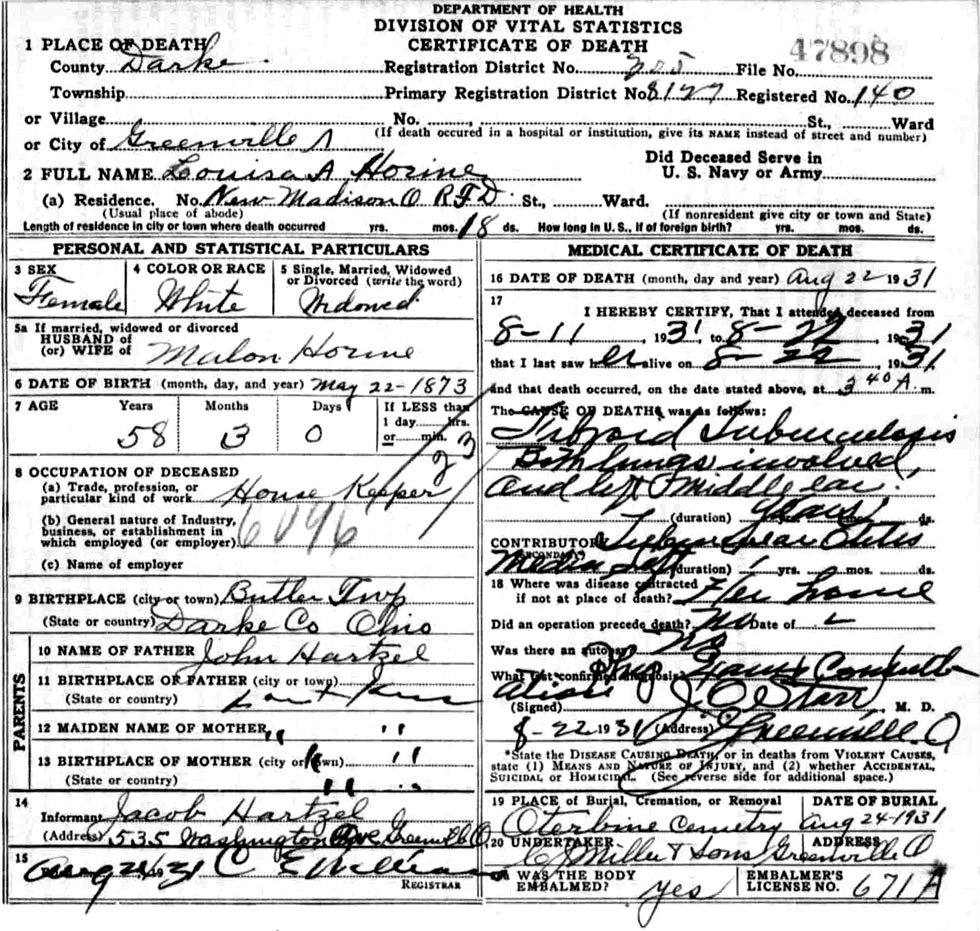 DEPARTMENT OF HEALTH
DIVISION OF VITAL STATISTICS
CERTIFICATE OF DEATH
47898
1 PLACE OF DEATH
County Darke Registration District No. 205 File No.
Township Primary Registration District No. 8127 Registered No. 140
or Village No. , St., Ward
(If death occured in a hospital or institution, give its NAME instead of street and number)
or City of Greenville
2 FULL NAME Louisa A Horine
Did Deceased Serve in
U. S. Navy or Army
(a) Residence. No. New Madison O R.F.D. St., Ward.
(Usual place of abode) (If nonresident give city or town and State)
Length of residence in city or town where death occurred yrs. mos. 18 ds. How long in U. S., if of foreign birth? yrs. mos. ds.
PERSONAL AND STATISTICAL PARTICULARS
3 SEX
Female
4 COLOR OR RACE
White
5 Single, Married, Widowed
or Divorced (write the word)
Widowed
5a If married, widowed or divorced
HUSBAND of
(or) WIFE of Malon Horine
6 DATE OF BIRTH (month, day, and year) May 22-1873
7 AGE Years Months Days If LESS than
1 day hrs.
or min.
58 3 0
23
8 OCCUPATION OF DECEASED
(a) Trade, profession, or
particular kind of work House Keeper
(b) General nature of Industry,
business, or establishment in
which employed (or employer) 6096
(c) Name of employer
9 BIRTHPLACE (city or town) Butler Twp
(State or country) Darke Co Ohio
PARENTS
10 NAME OF FATHER John Hartzel
11 BIRTHPLACE OF FATHER (city or town)
(State or country) Don't Know
12 MAIDEN NAME OF MOTHER " "
13 BIRTHPLACE OF MOTHER (city or town) " "
(State or country) "
14
Informant Jacob Hartzel
(Address) 535 Washington Ave Greenville O.
15
Aug 24 31 C E
REGISTRAR
MEDICAL CERTIFICATE OF DEATH
16 DATE OF DEATH (month, day and year) Aug 22 1931
17
I HEREBY CERTIFY, That I attended deceased from
8-11, 1931, to 8-22, 1931
that I last saw her alive on 8-22, 1931
and that death occurred, on the date stated above, at 3 40 A. m.
The CAUSE OF DEATH, was as follows:
Fibroid Tuberculosis
Both lungs involved,
and left middle ear.
(duration) years mos. ds.
CONTRIBUTORY Otitis
(SECONDARY)
Media Left (duration) 1 yrs. mos. ds.
18 Where was disease contracted
if not at place of death? Her home
Did an operation precede death? No Date of
Was there an autopsy? No
What test confirmed diagnosis? Phys Exam
(Signed) J. O. Starr, M. D.
8-22 1931 (Address) Greenville O
*State the DISEASE CAUSING DEATH, or in deaths from VIOLENT CAUSES,
state (1) MEANS AND NATURE OF INJURY, and (2) whether ACCIDENTAL,
SUICIDAL or HOMICIDAL. (See reverse side for additional space.)
19 PLACE of Burial, Cremation, or Removal DATE OF BURIAL
Oterbine Cemetry Aug 24-1931
20 UNDERTAKER ADDRESS
C J Miller & Sons Greenville O
WAS THE BODY
EMBALMED? yes
EMBALMER'S
LICENSE NO. 671 A